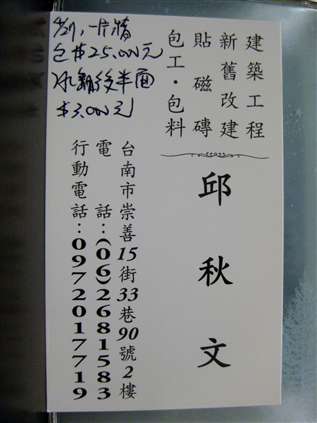 建築工程
新舊改建
貼磁磚
包工·包料
邱秋文
台南市崇善15街33巷90號2樓
電話:(06)2681583
行動電話:0972017719
一片牆
包$25,000元
後半面
$3,000元